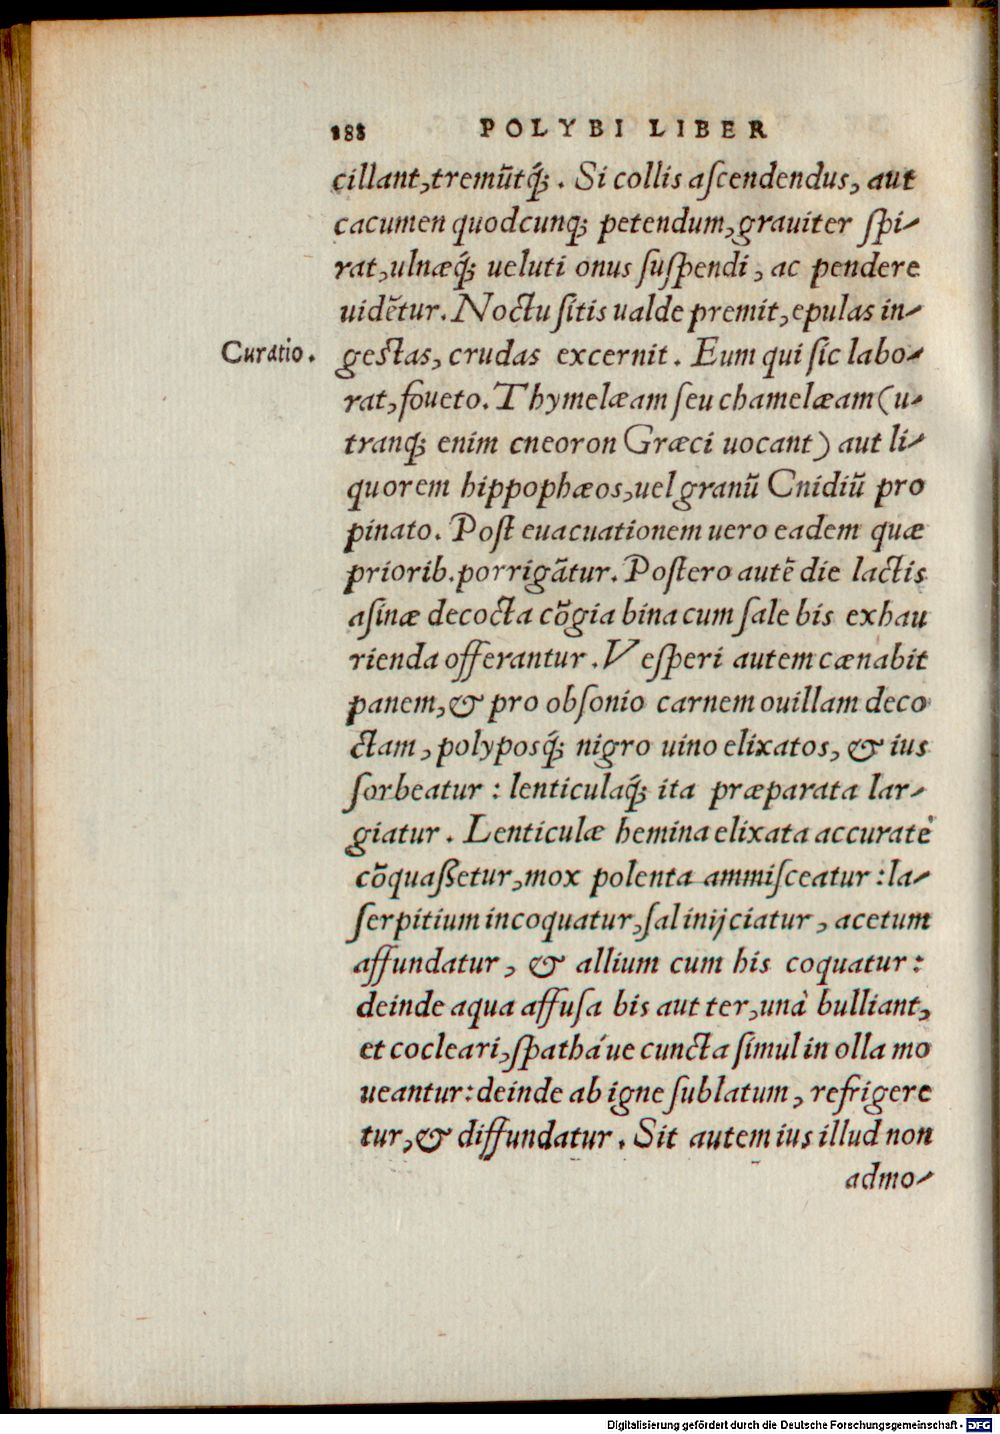 188 POLYBI LIBER
cillant, tremūtq́;. Si collis aſcendendus, aut
cacumen quodcunq; petendum, grauiter ſpi-
rat, ulnæq́; ueluti onus ſuſpendi, ac pendere
uidētur. Noctu ſitis ualde premit, epulas in-
Curatio. geſtas, crudas excernit. Eum qui ſic labo-
rat, foueto. Thymelæam ſeu chamelæam (u-
tranq; enim cneoron Græci uocant) aut li-
quorem hippophæos, uel granū Cnidiū pro
pinato. Poſt euacuationem uero eadem quæ
priorib. porrigātur. Poſtero autē die lactis
aſinæ decocta cōgia bina cum ſale bis exhau
rienda offerantur. Veſperi autem cænabit
panem, & pro obſonio carnem ouillam deco
ctam, polyposq́; nigro uino elixatos, & ius
ſorbeatur: lenticulaq́; ita præparata lar-
giatur. Lenticulæ hemina elixata accuratè
cōquaſſetur, mox polenta ammiſceatur: la-
ſerpitium incoquatur, ſal inijciatur, acetum
affundatur, & allium cum his coquatur:
deinde aqua affuſa bis aut ter, unà bulliant,
et cocleari, ſpatháue cuncta ſimul in olla mo
ueantur: deinde ab igne ſublatum, refrigere
tur, & diffundatur. Sit autem ius illud non
admo-
Digitalisierung gefördert durch die Deutsche Forschungsgemeinschaft - DFG